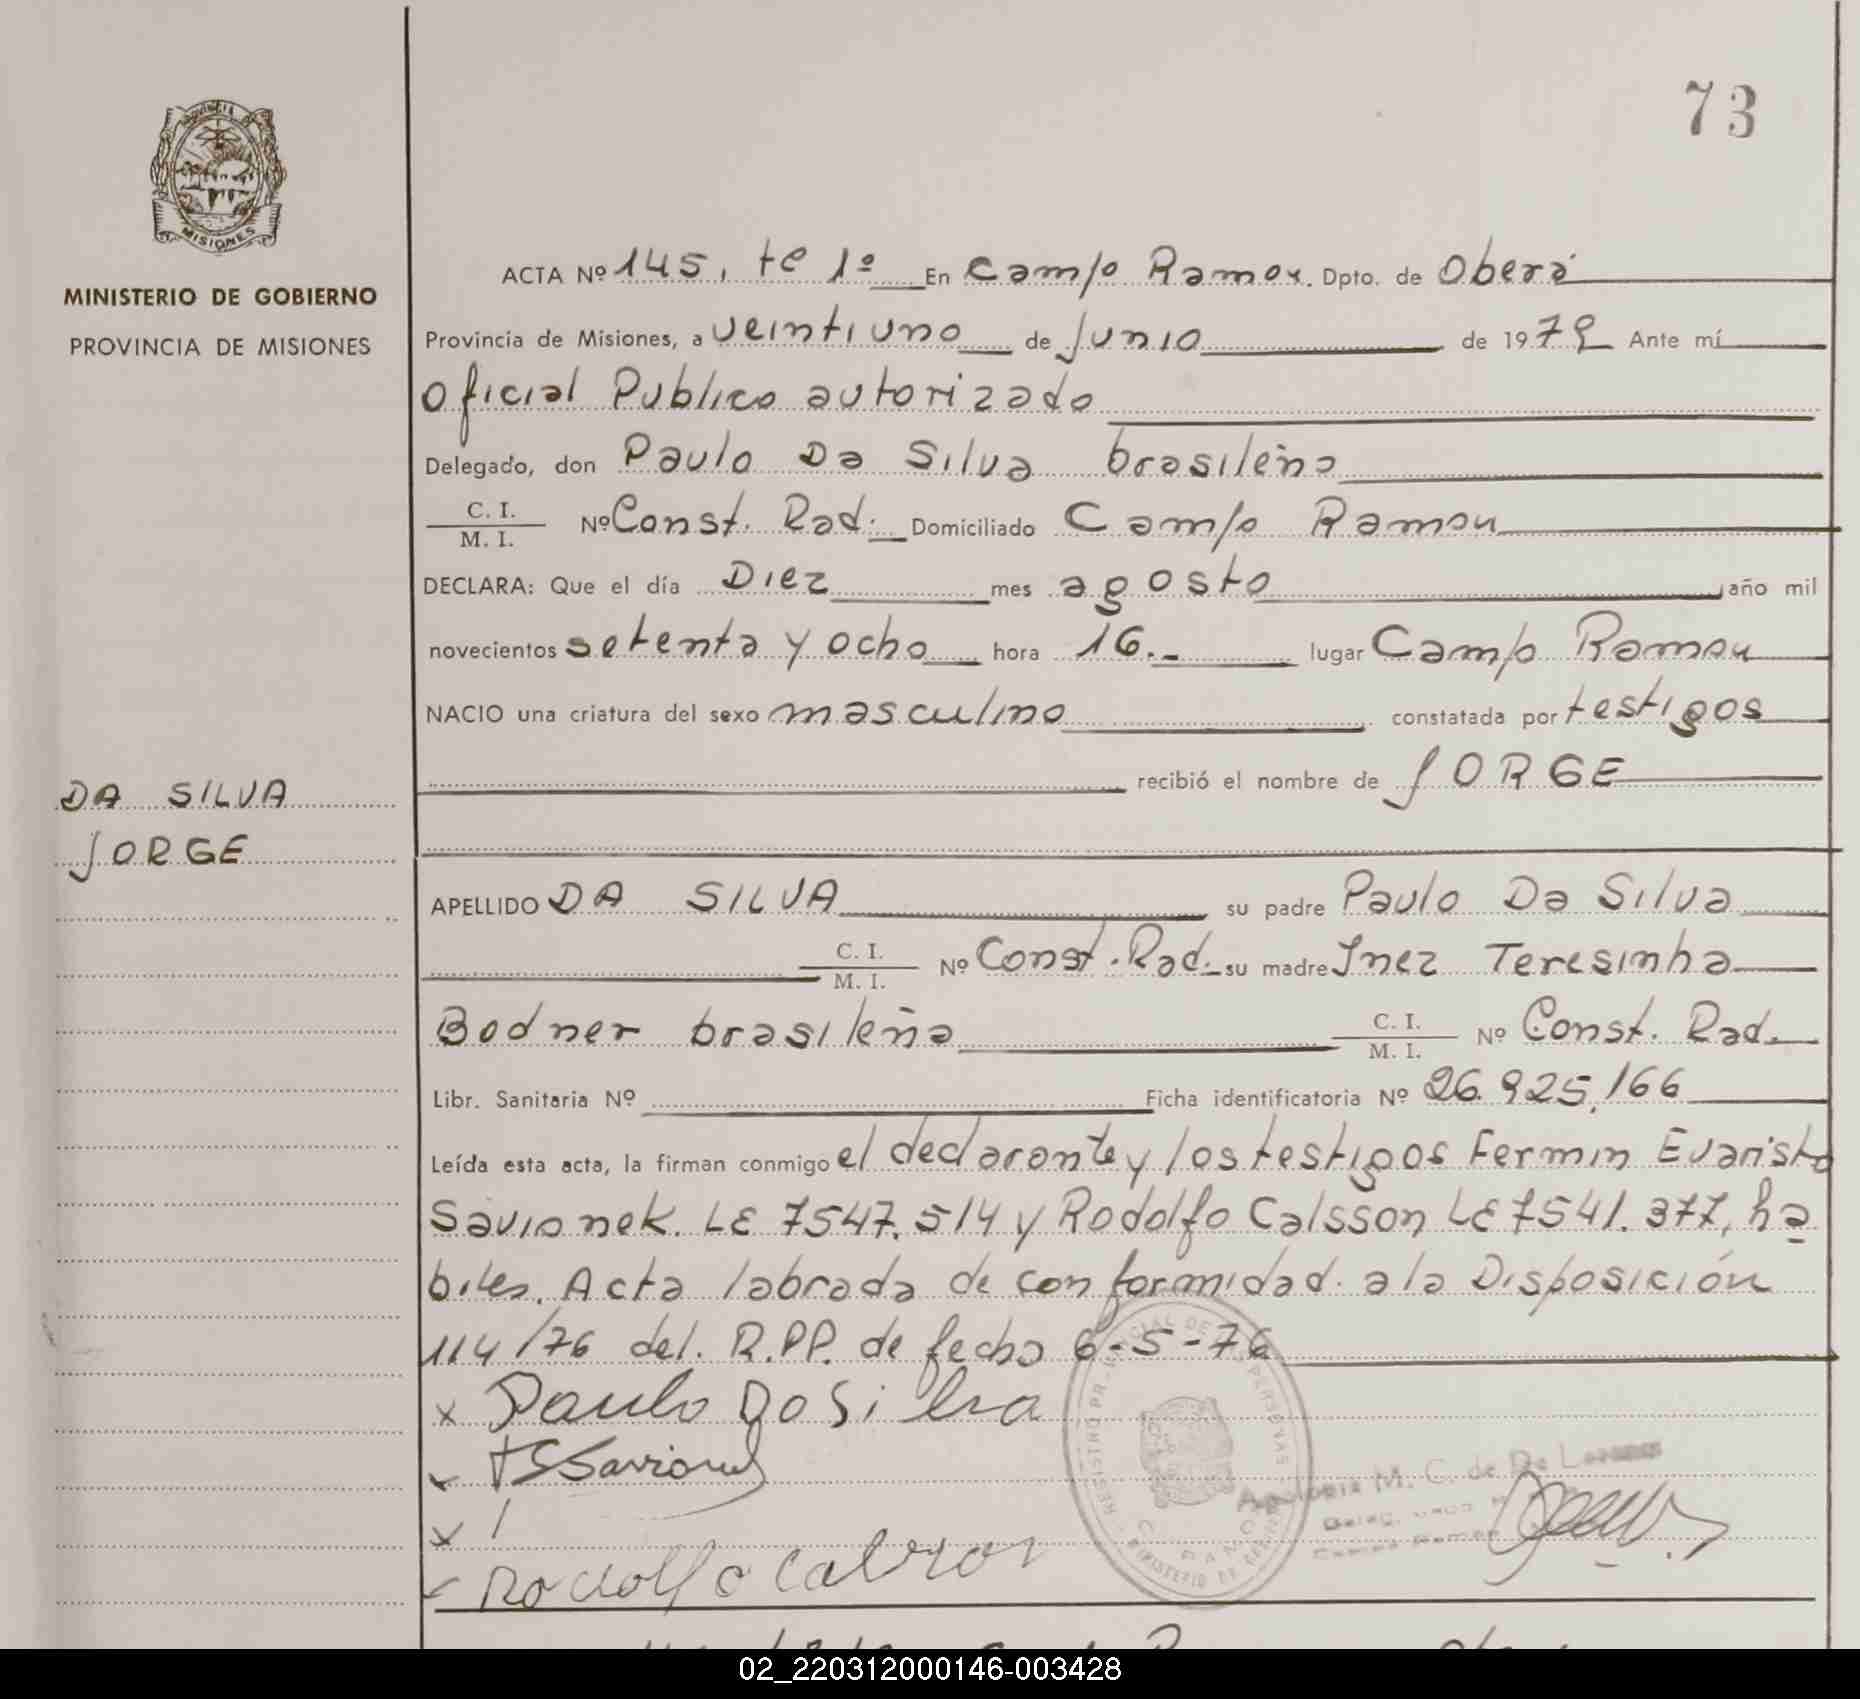 73
PROVINCIA DE
MISIONES
MINISTERIO DE GOBIERNO
PROVINCIA DE MISIONES
ACTA Nº 145, tº 1º En Campo Ramon. Dpto. de Oberá
Provincia de Misiones, a veintiuno de Junio de 1979 Ante mí
Oficial Publico autorizado
Delegado, don Paulo Da Silva brasileño
C. I.
M. I. Nº Const. Rad. Domiciliado Campo Ramon
DECLARA: Que el día Diez mes agosto año mil
novecientos setenta y ocho hora 16.- lugar Camp Ramon
NACIO una criatura del sexo masculino constatada por testigos
recibió el nombre de JORGE
DA SILVA
JORGE
APELLIDO DA SILVA su padre Paulo Da Silva
C. I.
M. I. Nº Const. Rad. su madre Inez Teresinha
Bodner brasileña C. I.
M. I. Nº Const. Rad.
Libr. Sanitaria Nº Ficha identificatoria Nº 26.925.166
Leída esta acta, la firman conmigo el declarante y los testigos Fermin Evaristo
Savionek. LE 7547.514 y Rodolfo Calsson LE 7541.377, ha
biles. Acta labrada de conformidad a la Disposición
114/76 del. R.PP. de fecha 6-5-76
x Paulo Da Silva
x
Rodolfo
M. C. de De
02_220312000146-003428